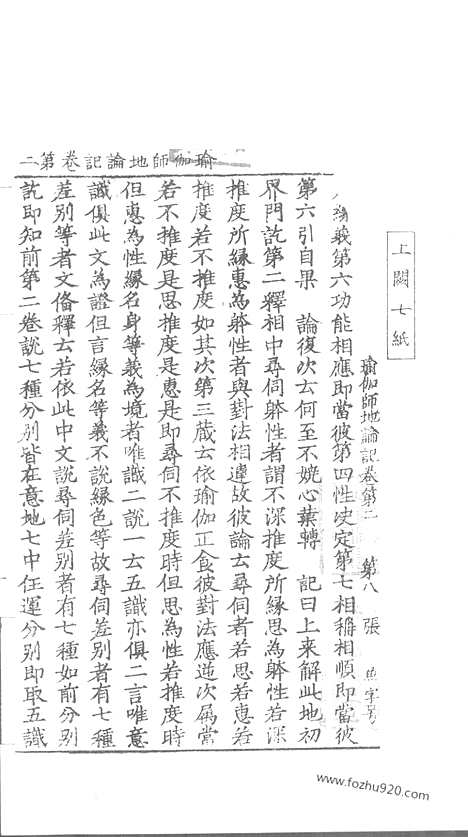 上闕七紙
瑜伽師地論記卷第二　第八張　魚字号
義第六功能相應即當彼第四性决定第七相稱相順即當彼
第六引自果　論復次云何至不娆心葉轉　記曰上來解此地初
界門訖第二釋相中尋伺躰性者謂不深推度所緣思為躰性若深
推度所緣惠為躰性者與對法相違故彼論云尋伺者若思若惠若
推度若不推度如其次第三藏云依瑜伽正食彼對法應迯次屬當
若不推度是思推度是惠是即尋伺不推度時但思為性若推度時
但惠為性緣名身等義為境者唯識二說一云五識亦俱二言唯意
識俱此文為證但言緣名等義不說緣色等故尋伺差别者有七種
差别等者文俻釋云若依此中文說尋伺差别者有七種如前分别
訖即知前第二卷說七種分别皆在意地七中任運分别即取五識
瑜伽師地論記卷第二
www.fozhu920.com